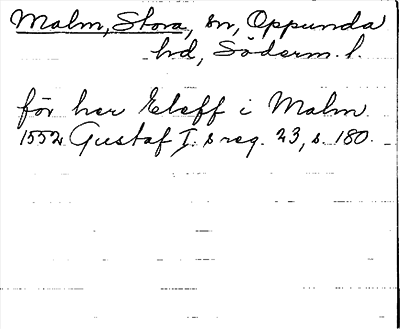 Malm, Stora, sn, Oppunda
hd, Söderm. l.
för her Eleff i Malm
1552 Gustaf I:s reg. 23, s. 180.